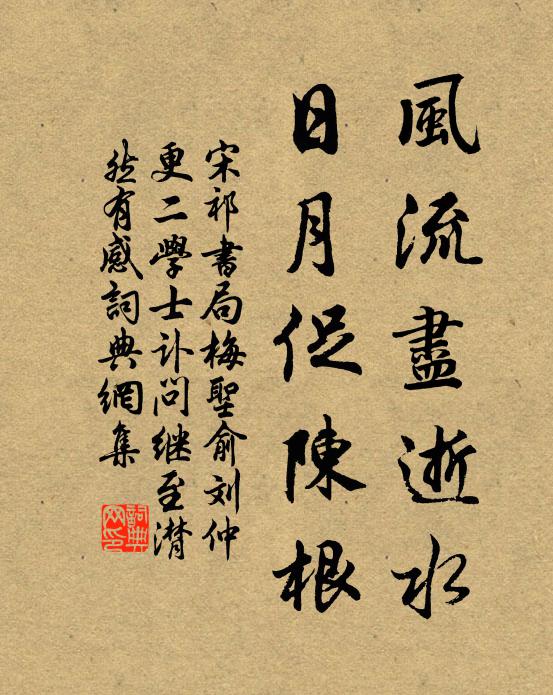 風流盡逝水
日月促陳根
宋祁書局梅聖俞刘仲
更二學士訃問继至潸
然有感詞典網集
詞典
网印